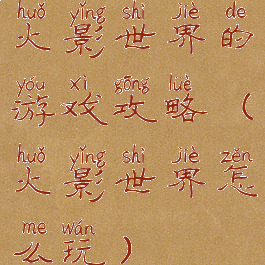 huǒ yǐng shì jiè de
火影世界的
yóu xì gōng lüè
游戏攻略（
huǒ yǐng shì jiè zěn
火影世界怎
me wán
么玩）